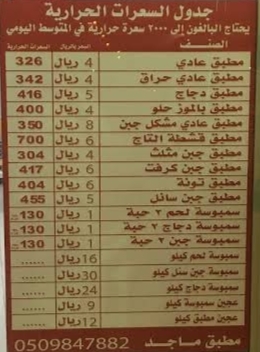 جدول السعرات الحرارية
يحتاج البالغون إلى ٢٠٠٠ سعرة حرارية في المتوسط اليومي
الصنف السعر بالريال السعرات الحرارية
مطبق عادي 4 ريال 326
مطبق عادي حراق 4 ريال 342
مطبق دجاج 5 ريال 416
مطبق بالموز حلو 4 ريال 400
مطبق عادي مشكل جبن 8 ريال 350
مطبق قشطة التاج 6 ريال 700
مطبق جبن مثلث 4 ريال 304
مطبق جبن كرفت 6 ريال 417
مطبق تونة 6 ريال 404
مطبق جبن سائل 5 ريال 455
سمبوسة لحم ٢ حبة 1 ريال 130
سمبوسة دجاج ٢ حبة 1 ريال 130
سمبوسة جبن ٢ حبة 1 ريال 130
سمبوسة لحم كيلو 16 ريال ......
سمبوسة جبن سئل كيلو 30 ريال ......
سمبوسة دجاج كيلو 24 ريال ......
عجين سمبوسة كيلو 9 ريال ......
عجين مطبق كيلو 12 ريال ......
مطبق ماجد 0509847882